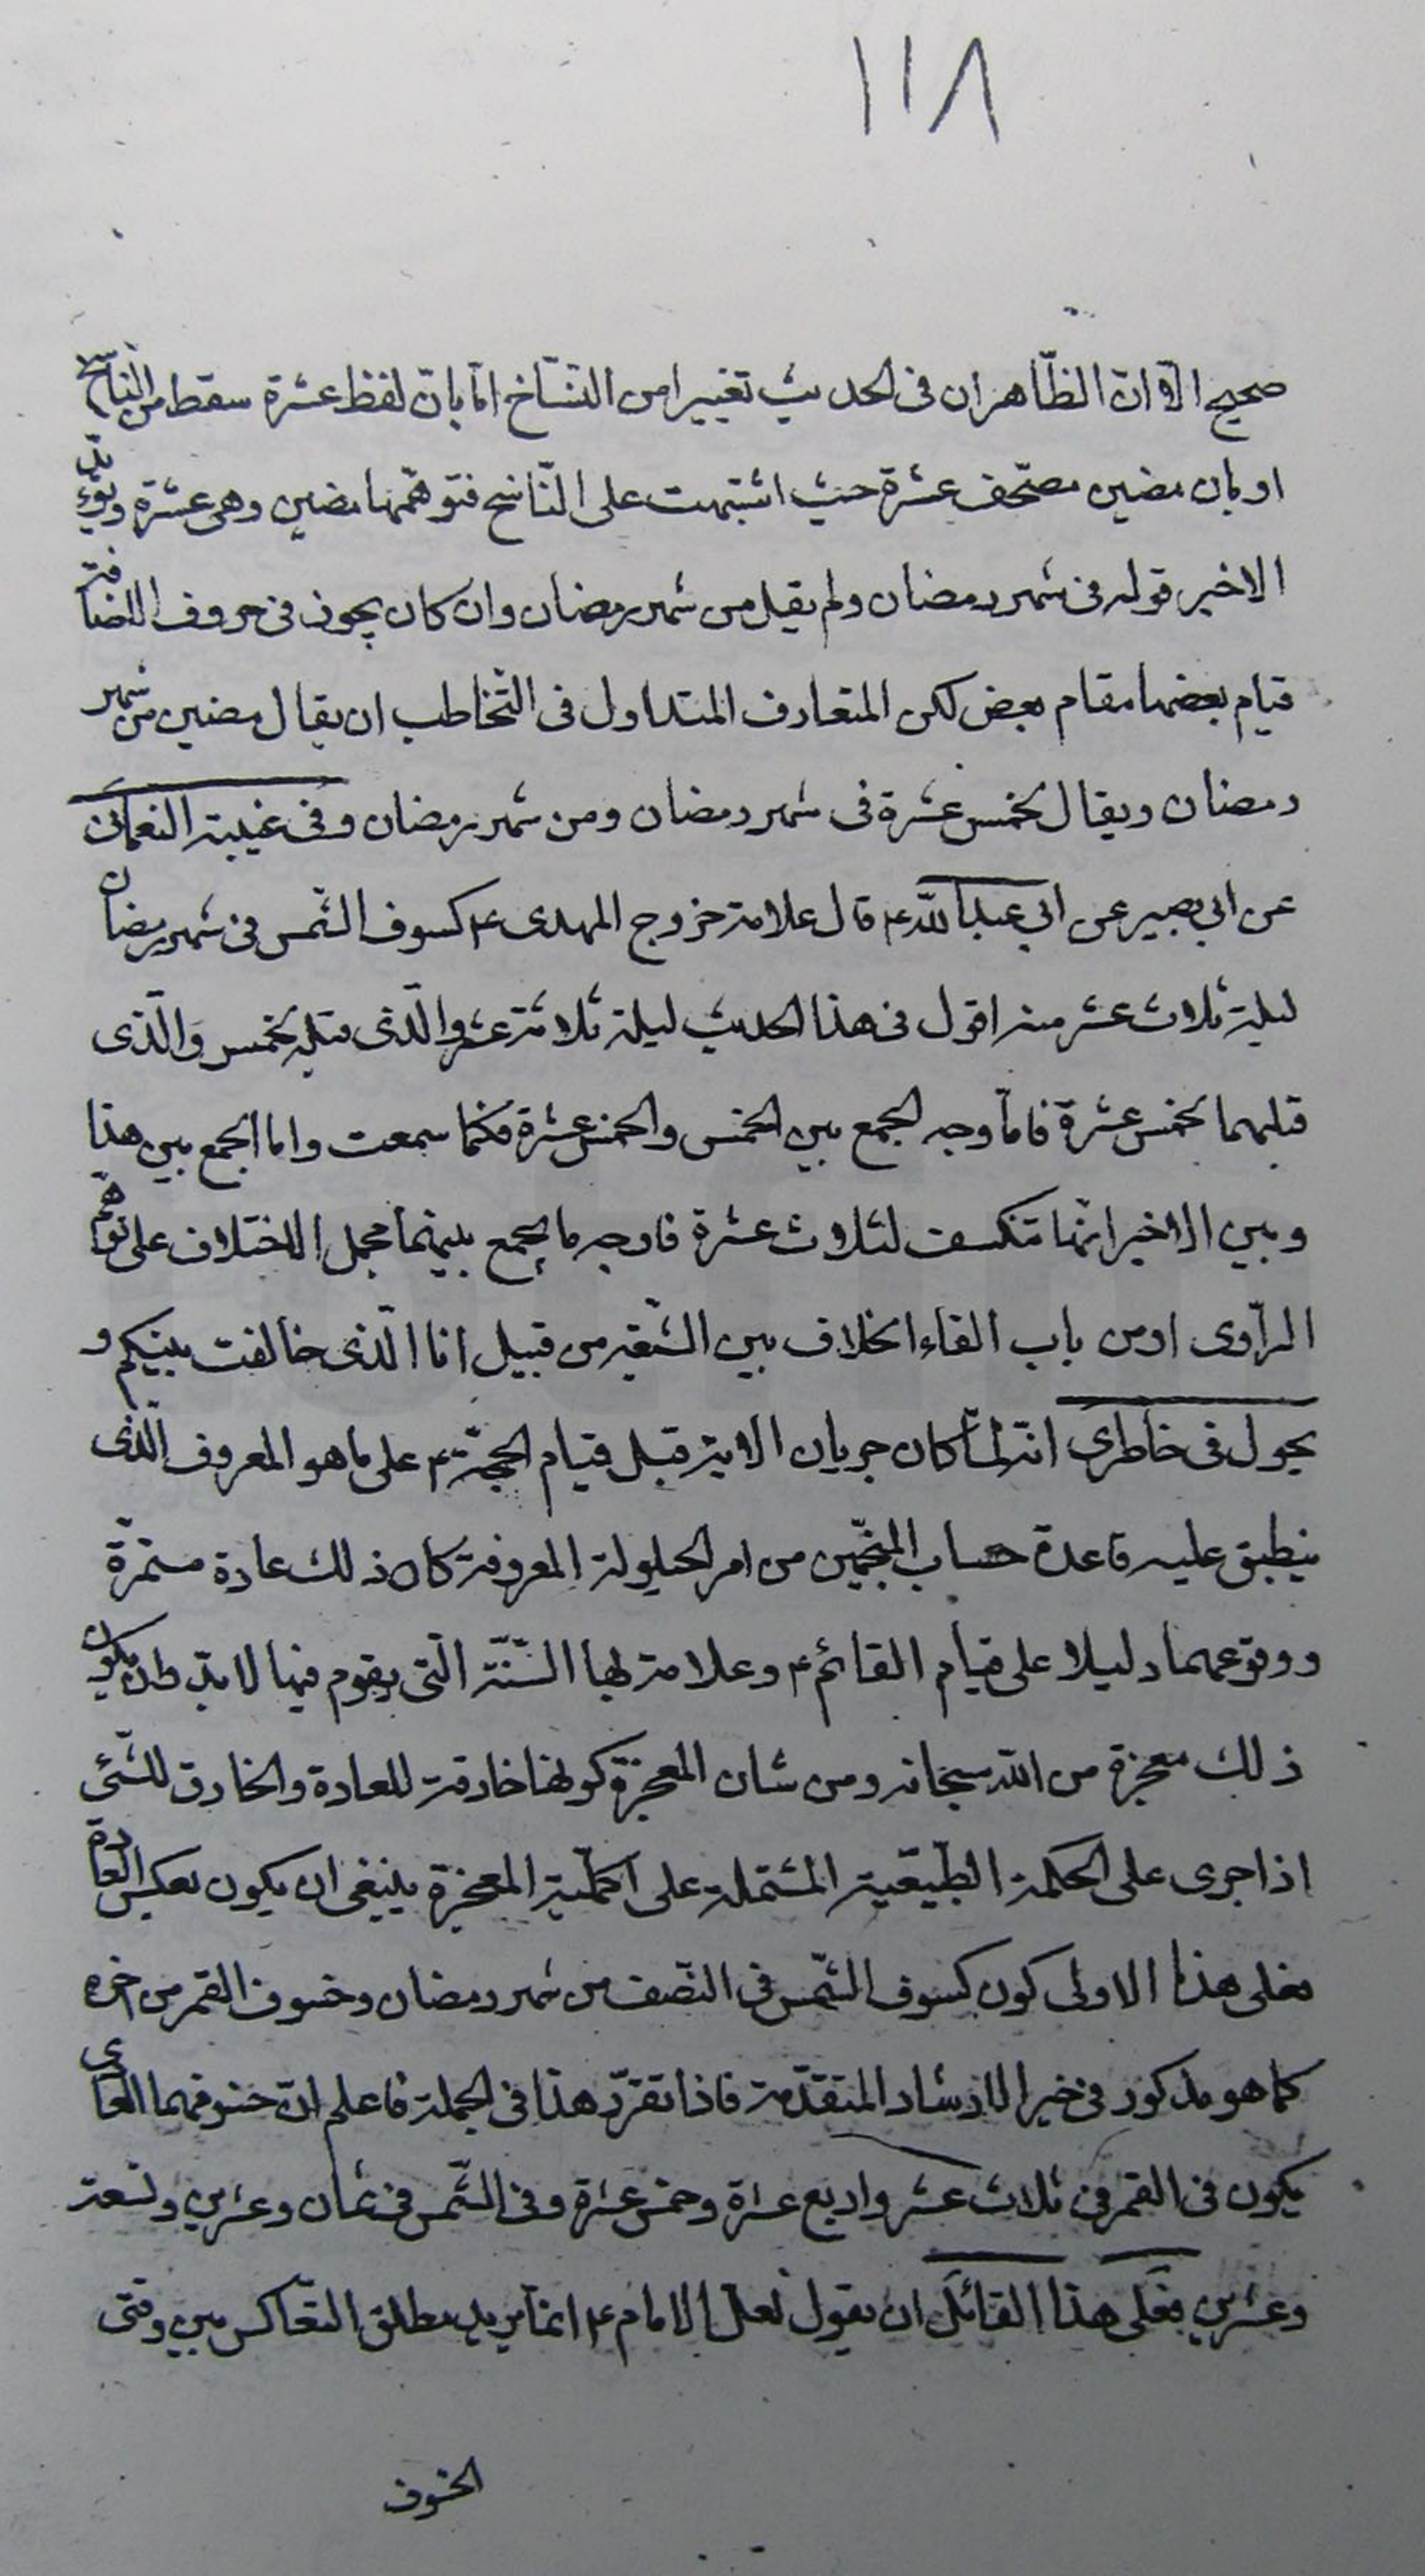 ١١٨
صحيح الّا انّ الظّاهر ان فى الحديث تغييرا من النسّاخ امّا بانّ لفظ عشرة سقط من النّاسخ
او بان مضين مصحّف عشرة حيث اشتبهت على النّاسخ فتوهّمها مضين وهى عشرة ويؤيّد
الاخير قوله فى شهر رمضان ولم يقل من شهر رمضان وان كان يجوز فى حروف الاضافة
قيام بعضها مقام بعض لكن المتعارف المتداول فى التّخاطب ان يقال مضين من شهر
رمضان ويقال لخمس عشرة فى شهر رمضان ومن شهر رمضان وفى غيبة النعمانى
عن ابى بصير عن ابى عبد الله ع قال علامة خروج المهدى ع كسوف الشّمس فى شهر رمضان
ليلة ثلاث عشر منه اقول فى هذا الحديث ليلة ثلاثة عشر والّذى قبله لخمس والّذى
قبلهما لخمس عشرة فامّا وجه الجمع بين الخمس والخمس عشرة فكما سمعت واما الجمع بين هذا
وبين الاخير انّها تنكسف لثلاث عشرة فاوجه ما يجمع بينهما بحمل الاختلاف على توهّم
الرّاوى او من باب القاء الخلاف بين الشّيعة من قبيل انا الّذى خالفت بينكم و
يجول فى خاطرى انّه لمّا كان جريان الاية قبل قيام الحجّة ع على ما هو المعروف الّذى
ينطبق عليه قاعدة حساب المنجّمين من امر الحيلولة المعروفة كان ذلك عادة مستمرّة
ووقوعهما دليلا على قيام القائم ع وعلامة لها السّنة الّتى يقوم فيها لا بدّ وان يكون
ذلك معجزة من الله سبحانه ومن شان المعجزة كونها خارقة للعادة والخارق للشّئ
اذا جرى على الحكمة الطّبيعية المشتملة على اكمليّة المعجزة ينبغى ان يكون بعكس العادة
فعلى هذا الاولى كون كسوف الشّمس فى النّصف من شهر رمضان وخسوف القمر من اخره
كما هو مذكور فى خبر الارشاد المتقدّمة فاذا تقرّر هذا فى الجملة فاعلم انّ خسوفهما العادى
يكون فى القمر فى ثلاث عشر واربع عشرة وخمس عشرة وفى الشّمس فى ثمان وعشرين وتسعة
وعشرين فعلى هذا القائل ان يقول لعلّ الامام ع انما يريد مطلق التعاكس بين وقتى
الخسوف